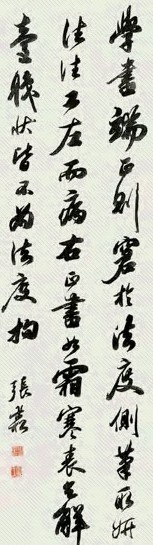 學書端正則窘於法度側筆取妍
往往工左而病右正書如霜寒表乞解
臺職狀皆不為法度拘
張照